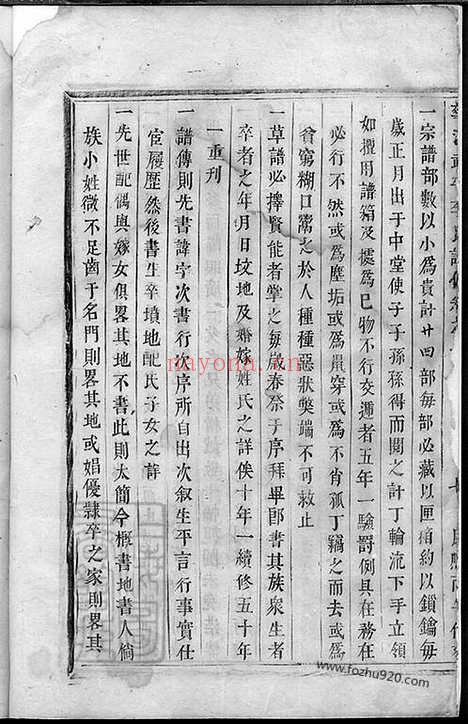 一宗譜部數以小為貴計廿四部每部必藏以匣箱約以鎖鑰每
歲正月出于中堂使子子孫孫得而閱之計丁輪流下手立領
如擅用譜箱及據為已物不行交遞者五年一驗罰例具在務在
必行不然或為塵垢或為鼠穿或為不肖孤丁竊之而去或為
貧窮糊口鬻之於人種種惡狀獘端不可救止
一草譜必擇賢能者掌之每歲春祭子序拜畢即書其族衆生者
卒者之年月日坟地及婚嫁姓氏之詳俟十年一續修五十年
一重刋
一譜傳則先書諱字次書行次序所自出次叙生平言行事實仕
宦履歷然後書生卒墳地配氏子女之詳
一先世配偶與嫁女俱畧其地不書此則太簡今概書地書人倘
族小姓微不足齒于名門則畧其地或娼優隸卒之家則畧其
nayona.cn
www.fozhu920.com